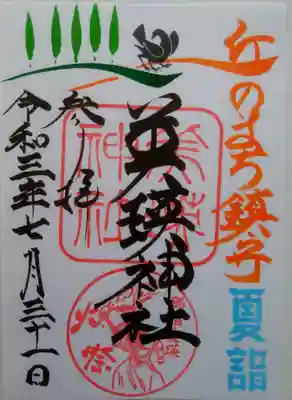 丘のまち鎮守
夏詣
美瑛神社
参拝
令和三年七月三十一日
美瑛神社
火祭